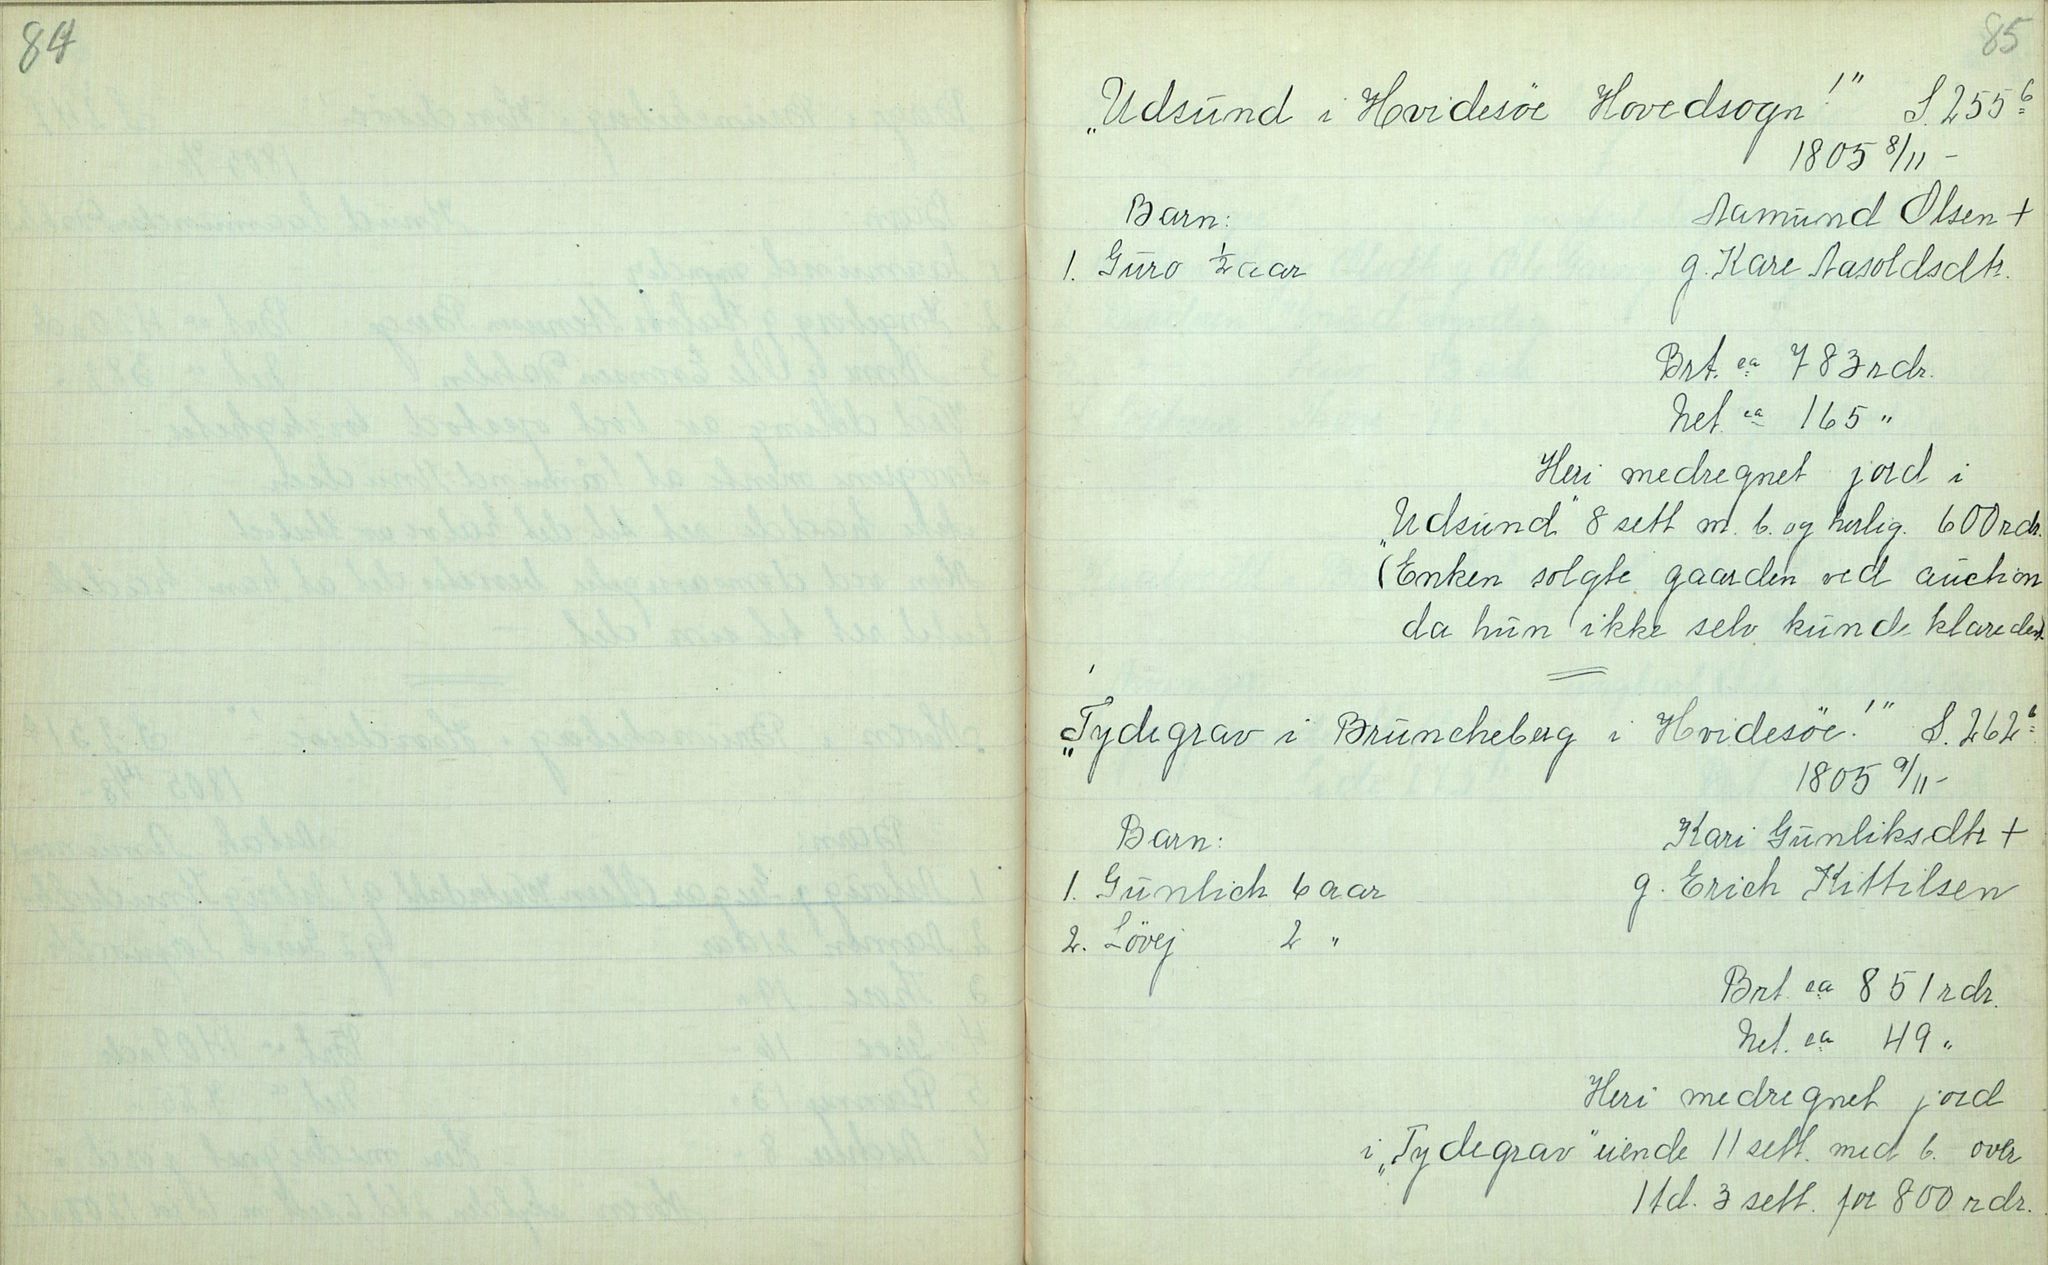 84
85
„Udsund i Hvidesöe Hovedsogn!" S. 255 b
1805 8/11 -
Barn: Aamund Olsen +
1. Guro ½ aar g. Kare Aasoldsdtr.
Brt. ca 783 rdr.
Net. ca 165 "
Heri medregnet jord i
„Udsund" 8 sett m. b. og herlig. 600 rdr.
(Enken solgte gaarden ved auction
da hun ikke selv kunde klare den).
„Tydegrav i Bruncheberg i Hvidesöe!" S. 262 b
1805 9/11 -
Barn: Kari Gunliksdtr +
1. Gunlich 6 aar g. Erich Kittilsen
2. Lövej 2 "
Brt. ca 851 rdr.
Net. ca 49 "
Heri medregnet jord
i „Tydegrav" uiende 11 sett. med b. over
1 td. 3 sett. for 800 rdr.